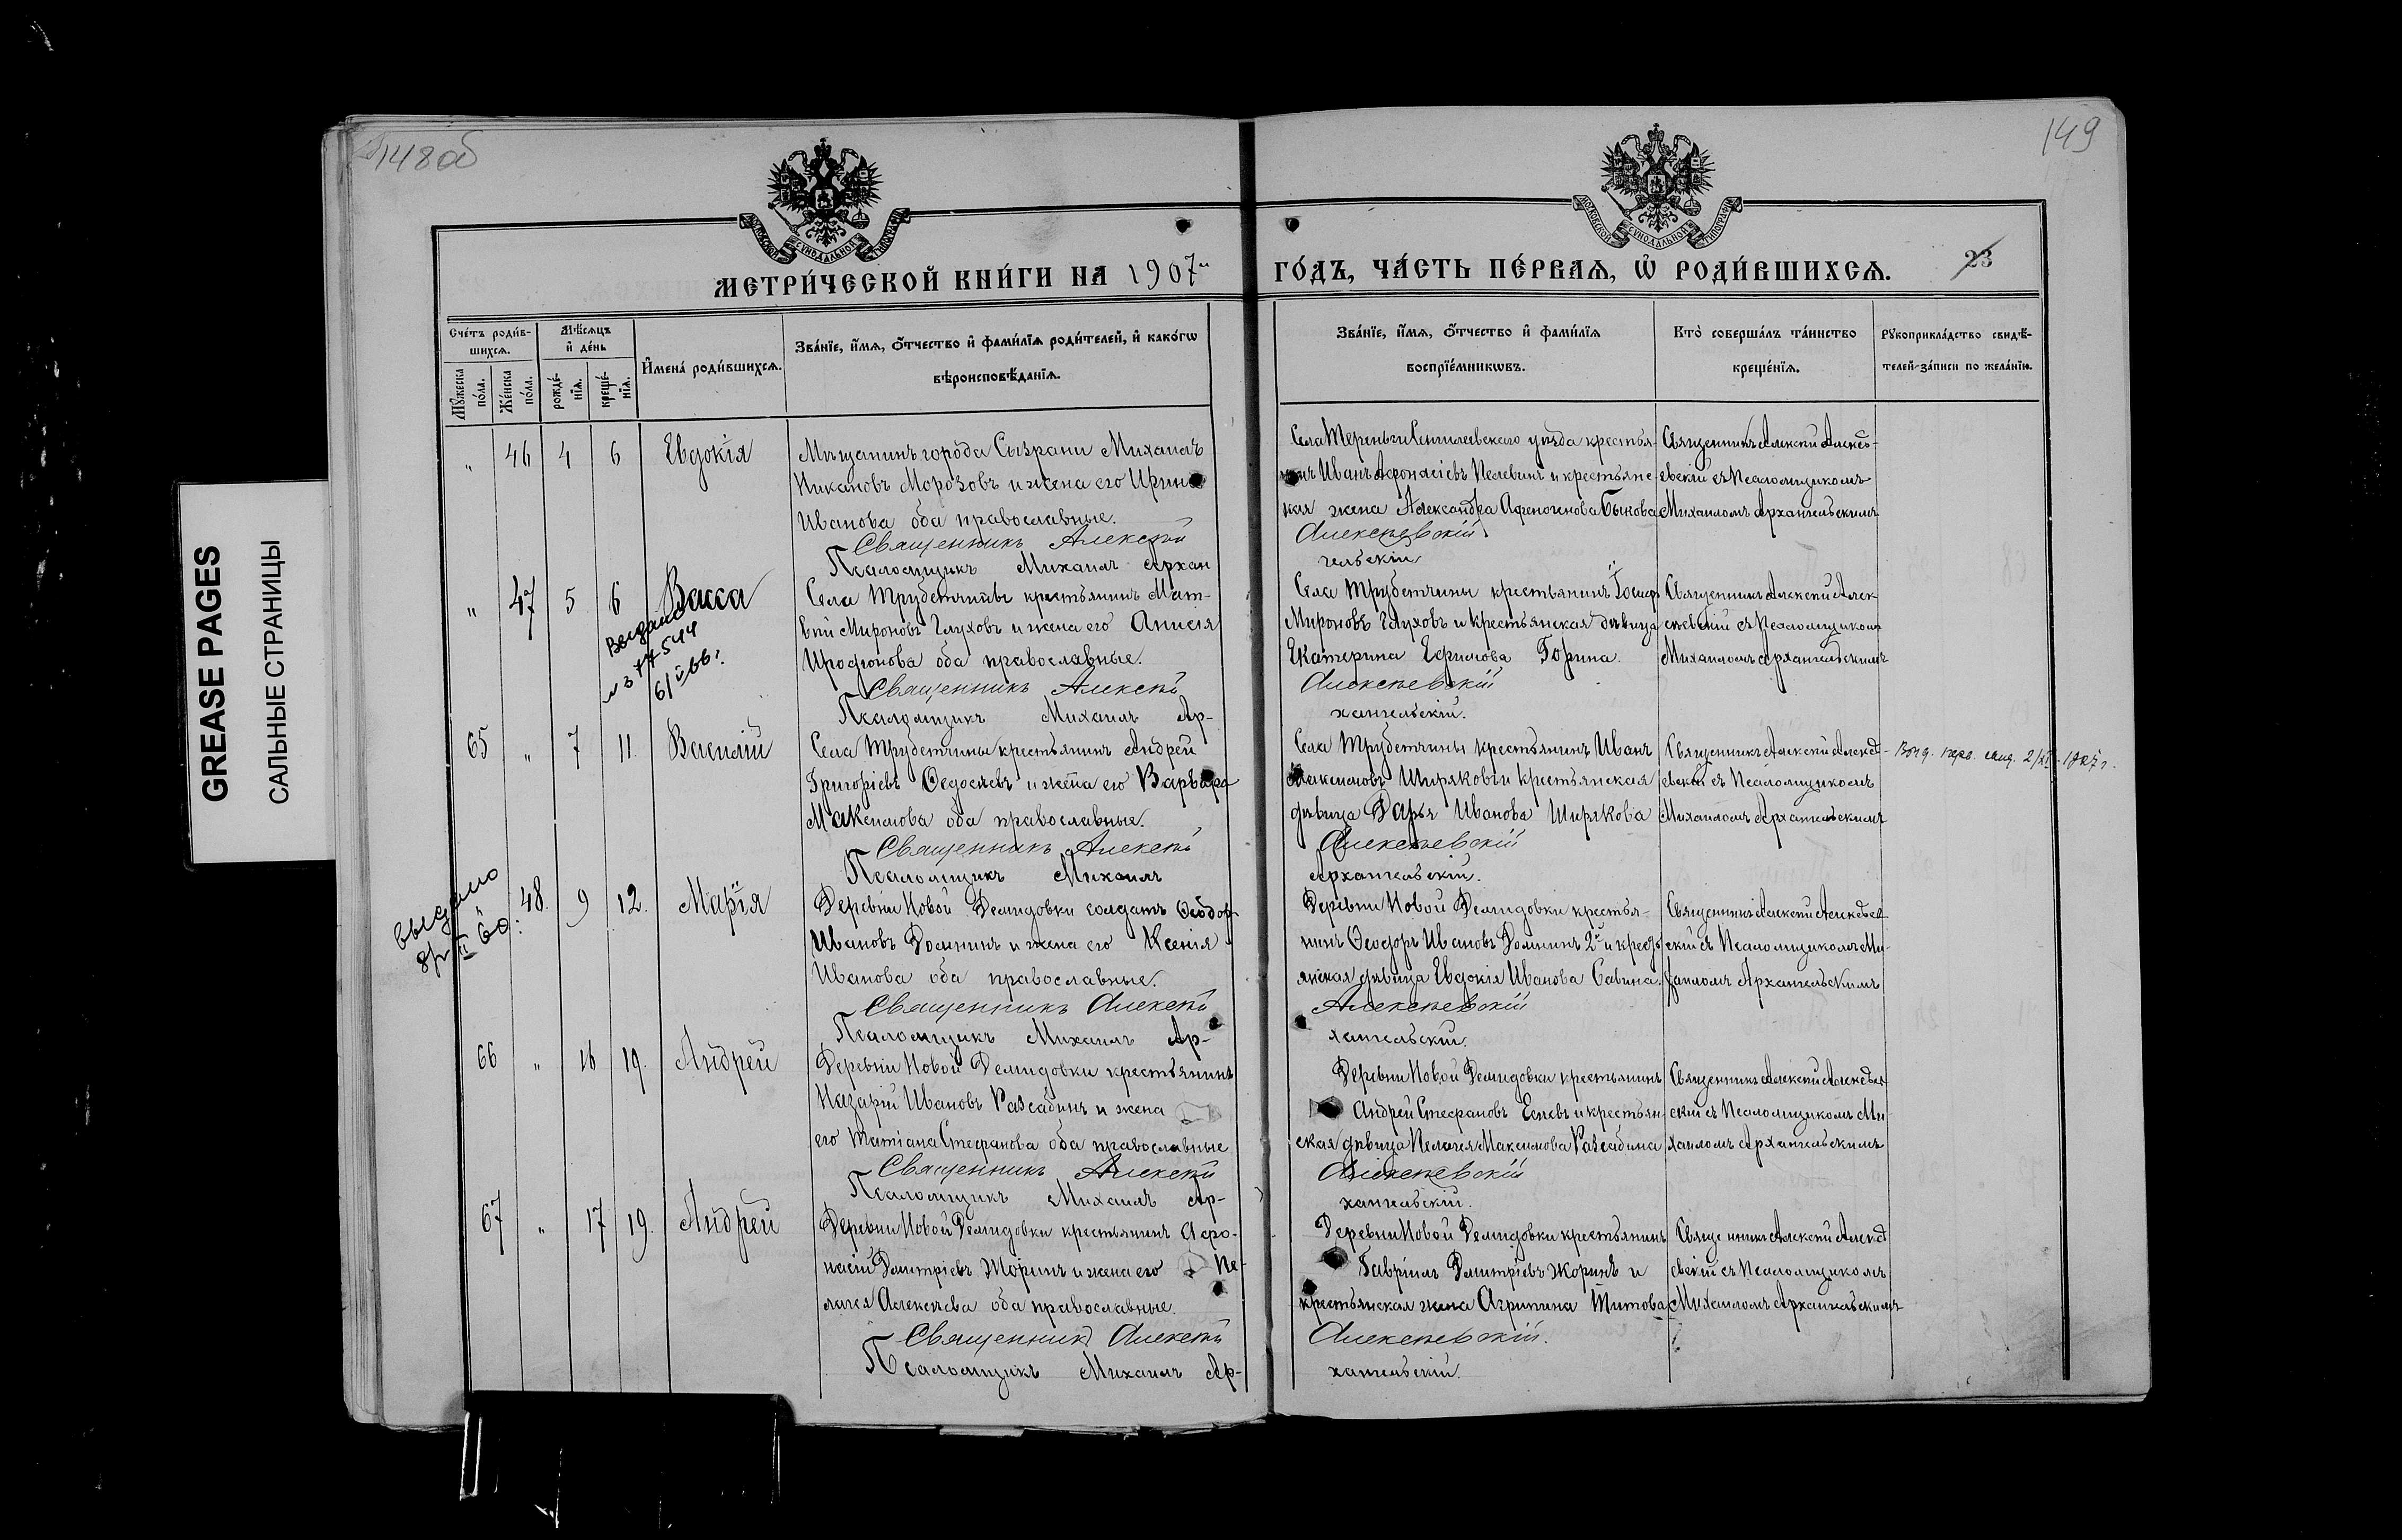 148об
149
МЕТРИ́ЧЕСКОЙ КНИ́ГИ НА 1907й
ГО́ДЪ, ЧА́СТЬ ПЕ́РВАѦ, Ѡ҆ РОДИ́ВШИХСѦ.
23
Сче́тъ роди́в-
шихсѧ.
Мѣ́сѧцъ
и҆ де́нь
И҆мена̀ роди́вшихсѧ.
Зва́нїе, и҆́мѧ, ѻ҆́тчество и҆ фами́лїѧ роди́телей, и҆ како́гѡ
вѣроисповѣ́данїѧ.
Мꙋ́жеска
по́ла.
Же́нска
по́ла.
рожде́-
нїѧ.
креще́-
нїѧ.
Зва́нїе, и҆́мѧ, ѻ҆́тчество и҆ фами́лїѧ
воспрїе́мникѡвъ.
Кто̀ соверша́лъ та́инство
креще́нїѧ.
Рꙋкоприкла́дство свидѣ́-
телей за́писи по жела́нїю.
GREASE PAGES
САЛЬНЫЕ СТРАНИЦЫ
" 46 4 6 Евдокія
Мѣщанинъ города Сызрани Михаилъ
Никановъ Морозовъ и жена его Ирина
Иванова оба православные.
Священникъ Алексѣй
Псаломщикъ Михаилъ Архан
Села Тереньги Сенгилеевскаго уѣзда крестья-
нинъ Иванъ Афонасіевъ Пелевинъ и крестьянс-
кая жена Александра Афиногенова Быкова
Алексѣевскій
гельскій
Священникъ Алексѣй Алексѣ-
евскій съ Псаломщикомъ
Михаиломъ Архангельскимъ
" 47 5 6 Васса
Выдано
61 66г.
Села Трубетчины крестьянинъ Мат-
вѣй Мироновъ Глуховъ и жена его Анисія
Иродіонова оба православные.
Священникъ Алексѣй
Псаломщикъ Михаилъ Ар-
Села Трубетчины крестьянинъ Іосифъ
Мироновъ Глуховъ и крестьянская дѣвица
Екатерина Ефимова Горина.
Алексѣевскій
хангельскій.
Священникъ Алексѣй Алек-
сѣевскій съ Псаломщикомъ
Михаиломъ Архангельскимъ
65 " 7 11. Василій
Села Трубетчины крестьянинъ Андрей
Григоріевъ Ѳедосѣевъ и жена его Варвара
Максимова оба православные.
Священникъ Алексѣй
Псаломщикъ Михаилъ
Села Трубетчины крестьянинъ Иванъ
Максимовъ Ширяковъ и крестьянская
дѣвица Дарья Иванова Ширякова
Алексѣевскій
Архангельскій.
Священникъ Алексѣй Алексѣ-
евскій съ Псаломщикомъ
Михаиломъ Архангельскимъ
1927г.
выдано
" 48. 9 12. Марія
Деревни Новой Демидовки солдатъ Ѳеодоръ
Ивановъ Доминъ и жена его Ксенія
Иванова оба православные.
Священникъ Алексѣй
Псаломщикъ Михаилъ Ар-
Деревни Новой Демидовки крестья-
нинъ Ѳеодоръ Ивановъ Доминъ 2й и кресть-
янская дѣвица Евдокія Иванова Савина.
Алексѣевскій
хангельскій.
Священникъ Алексѣй Алексѣев-
скій съ Псаломщикомъ Ми-
хаиломъ Архангельскимъ
66 " 16 19. Андрей
Деревни Новой Демидовки крестьянинъ
Назарій Ивановъ Разсадинъ и жена
его Татіана Стефанова оба православные
Священникъ Алексѣй
Псаломщикъ Михаилъ Ар-
Деревни Новой Демидовки крестьянинъ
Андрей Стефановъ Есевъ и крестьян-
ская дѣвица Пелагея Максимова Разсадина
Алексѣевскій
хангельскій.
Священникъ Алексѣй Алексѣев-
скій съ Псаломщикомъ Ми-
хаиломъ Архангельскимъ
67 " 17 19. Андрей
Деревни Новой Демидовки крестьянинъ Афо-
насій Дмитріевъ Жоринъ и жена его Пе-
лагея Алексѣева оба православные.
Священникъ Алексѣй
Псаломщикъ Михаилъ Ар-
Деревни Новой Демидовки крестьянинъ
Гавріилъ Дмитріевъ Жоринъ и
крестьянская жена Агрипина Титова
Алексѣевскій.
хангельскій.
Священникъ Алексѣй Алексѣ-
евскій съ Псаломщикомъ
Михаиломъ Архангельскимъ